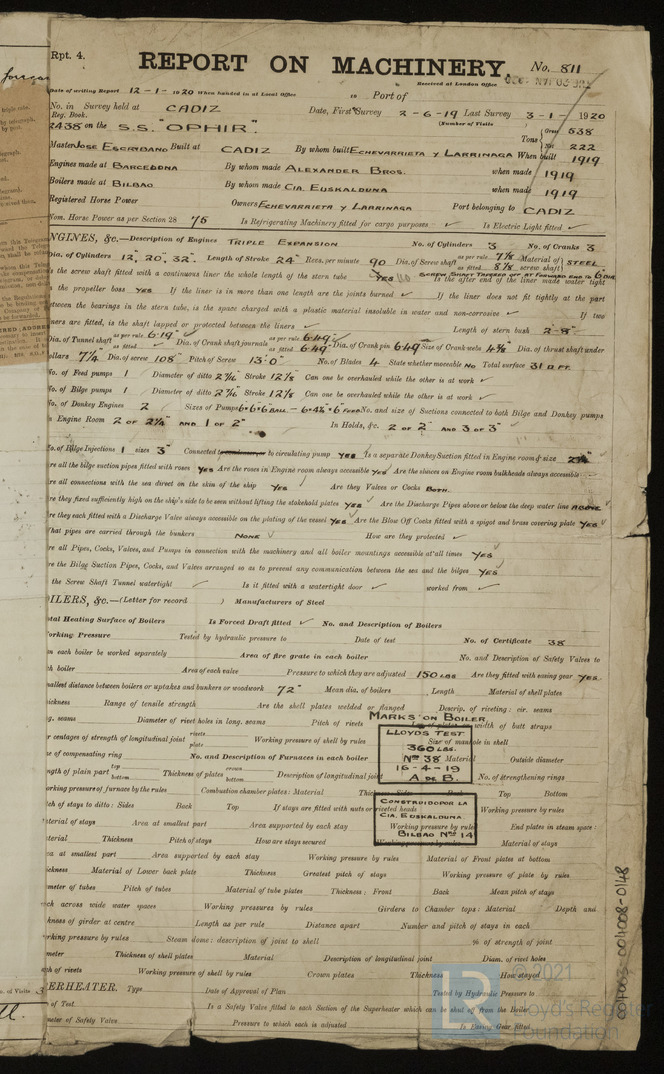 Rpt. 4.
REPORT ON MACHINERY.
No. 811
Received at London Office
Date of writing Report 12-1-1920 When handed in at Local Office
Port of
No. in Survey held at CADIZ Date, First Survey 2-6-19 Last Survey 3-1-1920
Reg. Book.
(Number of Visits
2438 on the S.S. "OPHIR".
Tons Gross 538
Net 222
Master JOSE ESCRIBANO Built at CADIZ By whom built ECHEVARRIETA Y LARRINAGA When built 1919
Engines made at BARCELONA By whom made ALEXANDER BROS. when made 1919
Boilers made at BILBAO By whom made CIA. EUSKALDUNA when made 1919
Registered Horse Power Owners ECHEVARRIETA Y LARRINAGA Port belonging to CADIZ
Nom. Horse Power as per Section 28 75 Is Refrigerating Machinery fitted for cargo purposes ✓ Is Electric Light fitted ✓
NGINES, &c.—Description of Engines TRIPLE EXPANSION No. of Cylinders 3 No. of Cranks 3
Dia. of Cylinders 12", 20", 32" Length of Stroke 24" Revs. per minute 90 Dia. of Screw shaft as per rule 7⅞ Material of STEEL
as fitted 8⅛ screw shaft
is the screw shaft fitted with a continuous liner the whole length of the stern tube YES Is the after end of the liner made water tight
SCREW SHAFT TAPERED OFF AT FORWARD END TO 6
the propeller boss YES If the liner is in more than one length are the joints burned ✓ If the liner does not fit tightly at the part
between the bearings in the stern tube, is the space charged with a plastic material insoluble in water and non-corrosive ✓ If two
liners are fitted, is the shaft lapped or protected between the liners ✓ Length of stern bush 2-8"
Dia. of Tunnel shaft as per rule 6.19" Dia. of Crank shaft journals as per rule 6.49" Dia. of Crank pin 6.49 Size of Crank webs 4⅜ Dia. of thrust shaft under
as fitted as fitted 6.49"
ollars 7¼ Dia. of screw 108" Pitch of Screw 13'.0" No. of Blades 4 State whether moveable NO Total surface 31 □ FT.
No. of Feed pumps 1 Diameter of ditto 2⁷⁄₁₆ Stroke 12⅛ Can one be overhauled while the other is at work ✓
No. of Bilge pumps 1 Diameter of ditto 2⁷⁄₁₆ Stroke 12⅛ Can one be overhauled while the other is at work ✓
No. of Donkey Engines 2 Sizes of Pumps 6×6×6 BALL. – 6×4¼×6 FEED No. and size of Suctions connected to both Bilge and Donkey pumps
n Engine Room 2 OF 2¼" AND 1 OF 2" In Holds, &c. 2 OF 2" AND 3 OF 3"
No. of Bilge Injections 1 sizes 3" Connected to circulating pump YES Is a separate Donkey Suction fitted in Engine room & size 2¼"
re all the bilge suction pipes fitted with roses YES Are the roses in Engine room always accessible YES Are the sluices on Engine room bulkheads always accessible
re all connections with the sea direct on the skin of the ship YES Are they Valves or Cocks BOTH.
re they fixed sufficiently high on the ship's side to be seen without lifting the stokehold plates YES Are the Discharge Pipes above or below the deep water line ABOVE
re they each fitted with a Discharge Valve always accessible on the plating of the vessel YES Are the Blow Off Cocks fitted with a spigot and brass covering plate YES
What pipes are carried through the bunkers NONE How are they protected ✓
re all Pipes, Cocks, Valves, and Pumps in connection with the machinery and all boiler mountings accessible at all times YES
re the Bilge Suction Pipes, Cocks, and Valves arranged so as to prevent any communication between the sea and the bilges YES
the Screw Shaft Tunnel watertight ✓ Is it fitted with a watertight door ✓ worked from ✓
OILERS, &c.—(Letter for record ) Manufacturers of Steel
otal Heating Surface of Boilers Is Forced Draft fitted ✓ No. and Description of Boilers
Working Pressure Tested by hydraulic pressure to Date of test No. of Certificate 38
an each boiler be worked separately Area of fire grate in each boiler No. and Description of Safety Valves to
ch boiler Area of each valve Pressure to which they are adjusted 150 LBS Are they fitted with easing gear YES.
mallest distance between boilers or uptakes and bunkers or woodwork 72" Mean dia. of boilers Length Material of shell plates
hickness Range of tensile strength Are the shell plates welded or flanged Descrip. of riveting: cir. seams
ng. seams Diameter of rivet holes in long. seams Pitch of rivets Lap of plates or width of butt straps
MARKS ON BOILER
er centages of strength of longitudinal joint rivets Working pressure of shell by rules Size of manhole in shell
plate
LLOYDS TEST
360 LBS.
Nº 38
16-4-19
A. DE B.
ze of compensating ring No. and Description of Furnaces in each boiler Material Outside diameter
ngth of plain part top Thickness of plates crown Description of longitudinal joint No. of strengthening rings
bottom bottom
orking pressure of furnace by the rules Combustion chamber plates: Material Thickness: Sides Back Top Bottom
tch of stays to ditto: Sides Back Top If stays are fitted with nuts or riveted heads Working pressure by rules
CONSTRUIDO POR LA
CIA. EUSKALDUNA.
BILBAO Nº 14
aterial of stays Area at smallest part Area supported by each stay Working pressure by rules End plates in steam space:
aterial Thickness Pitch of stays How are stays secured Working pressure by rules Material of stays
ea at smallest part Area supported by each stay Working pressure by rules Material of Front plates at bottom
ickness Material of Lower back plate Thickness Greatest pitch of stays Working pressure of plate by rules
ameter of tubes Pitch of tubes Material of tube plates Thickness: Front Back Mean pitch of stays
ch across wide water spaces Working pressures by rules Girders to Chamber tops: Material Depth and
kness of girder at centre Length as per rule Distance apart Number and pitch of stays in each
orking pressure by rules Steam dome: description of joint to shell % of strength of joint
meter Thickness of shell plates Material Description of longitudinal joint Diam. of rivet holes
ch of rivets Working pressure of shell by rules Crown plates Thickness How stayed
ERHEATER. Type Date of Approval of Plan Tested by Hydraulic Pressure to
of Test. Is a Safety Valve fitted to each Section of the Superheater which can be shut off from the Boiler
meter of Safety Valve Pressure to which each is adjusted Is Easing Gear fitted
© 2021
Lloyd's Register
Foundation
004003-004008-0148